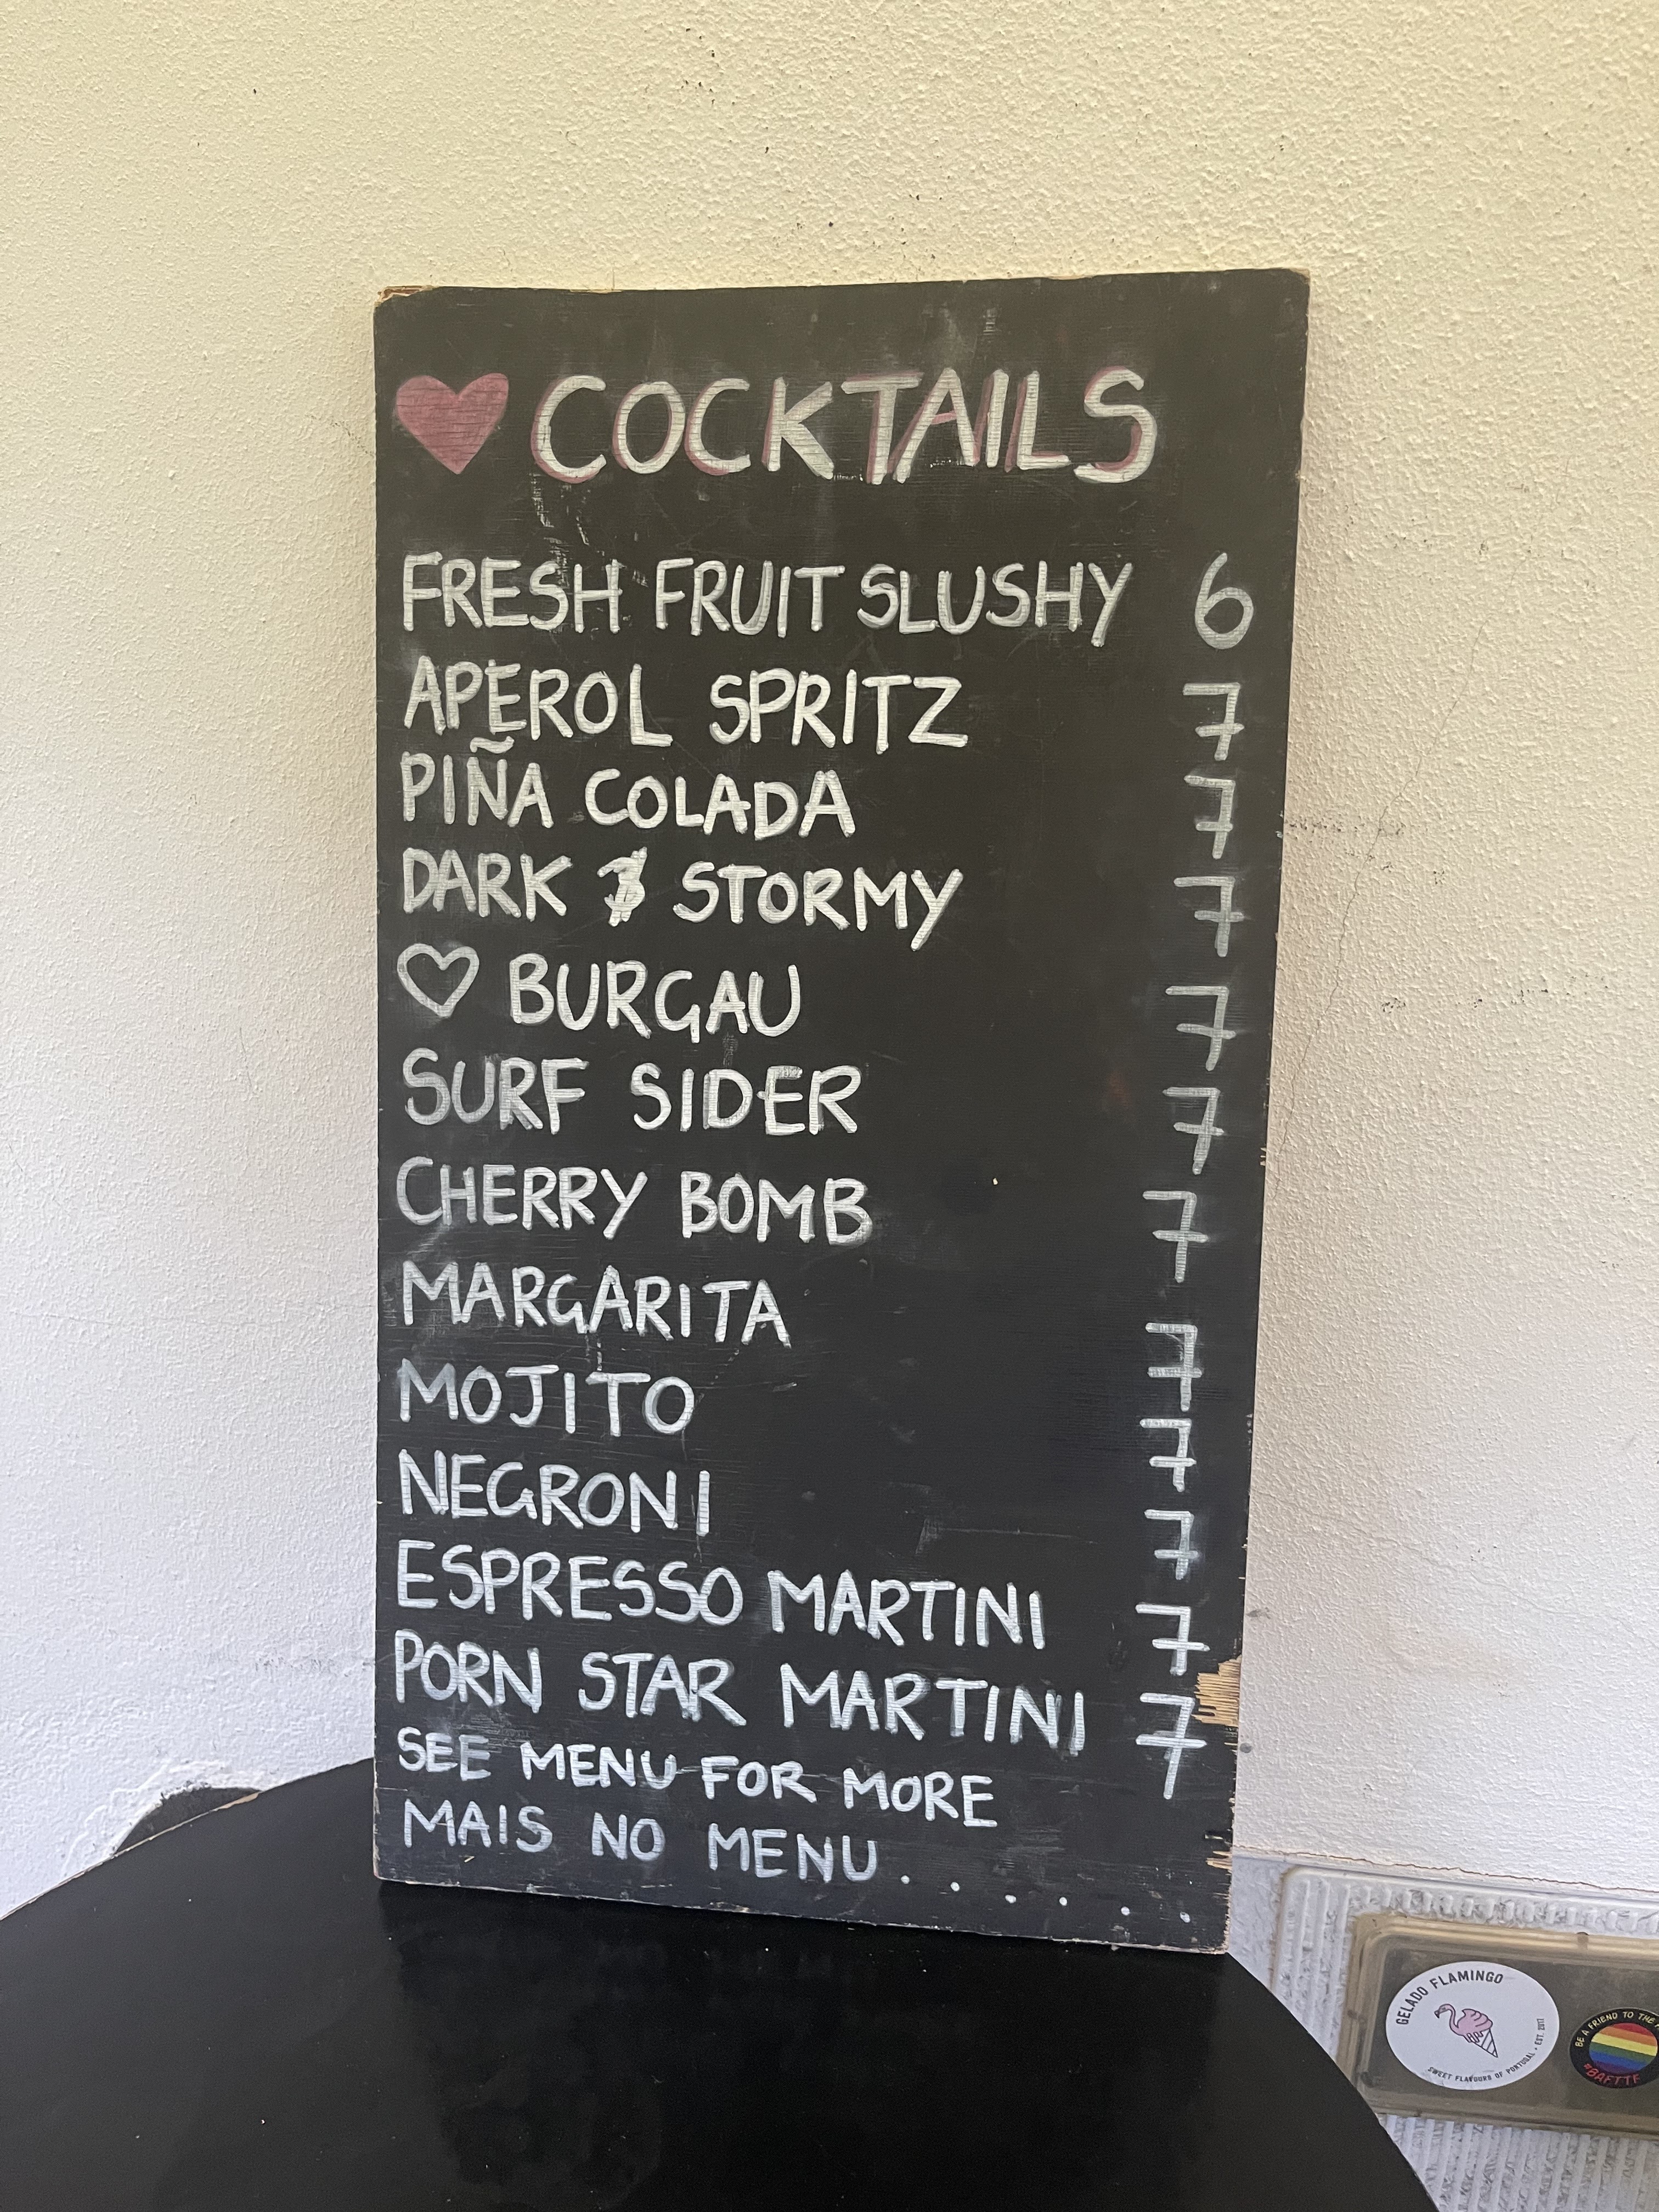 ♥ COCKTAILS
FRESH FRUIT SLUSHY 6
APEROL SPRITZ 7
PIÑA COLADA 7
DARK & STORMY 7
♡ BURGAU 7
SURF SIDER 7
CHERRY BOMB 7
MARGARITA 7
MOJITO 7
NEGRONI 7
ESPRESSO MARTINI 7
PORN STAR MARTINI 7
SEE MENU FOR MORE
MAIS NO MENU......
GELADO FLAMINGO
SWEET FLAVOURS OF PORTUGAL • EST. 2017
BE A FRIEND TO THE
#BAFTTF